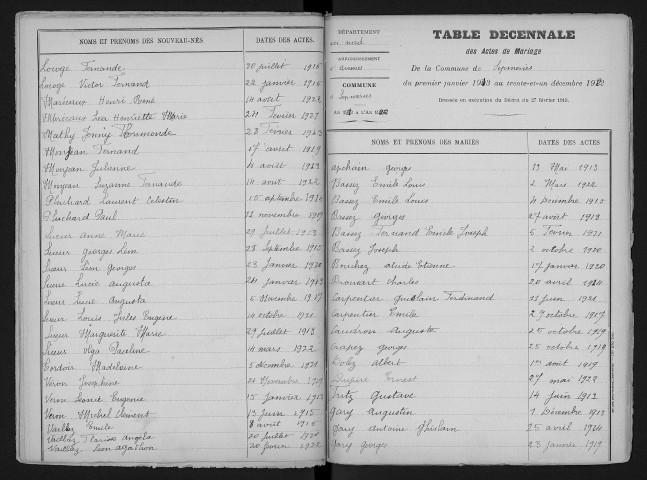 NOMS ET PRENOMS DES NOUVEAU-NÉS DATES DES ACTES.
Locoge Fernande 20 juillet 1916
Locoge Victor Fernand 22 janvier 1916
Marécaux Henri René 14 avril 1922
Léa Henriette Marie 24 Février 1921
Mathy Jenny 28 Février 1913
Monjean Fernand 17 avril 1919
Monjean Julienne 4 août 1913
Monjean Suzanne Fernande 14 août 1922
Laurent Célestin 15 septembre
Pluchard Paul 11 novembre 1919
Sueur anne Marie 29 juillet 1913
Sueur georges Léon 28 Septembre 1915
Sueur Léon georges 23 Janvier 1920
Sueur Lucie augusta 24 janvier 1913
Sueur Lucie Augusta 5 Novembre 1917
Sueur Louis Jules Eugène 14 octobre 1921
Sueur Marguerite Marie 29 juillet 1913
Sueur Olga Pauline 14 mars 1922
Tordoir Madeleine 5 décembre 1921
Véron Joséphine 21 Novembre 1919
Véron Léonie Eugénie 15 janvier 1913
Véron Michel Clément 13 Juin 1915
Vaillez Emile 8 avril 1916
Vaillez angéla 20 juillet 1920
Vaillez Léon 20 février 1922
DÉPARTEMENT
du nord
ARRONDISSEMENT
d'avesnes
COMMUNE
de Sepmeries
TABLE DECENNALE
des Actes de Mariage
De la Commune de Sepmeries
du premier janvier 1913 au trente-et-un décembre 1922
NOMS ET PRENOMS DES MARIÉS DATES DES ACTES
georges 13 Mai 1913
Bassez Emile Louis 2 Mars 1922
Bassez Emile Louis 4 Décembre 1915
Bassez Georges 27 avril 1912
Bassez Fernand Emile Joseph 5 Février 1921
Bassez Joseph 2 octobre 1920
Bouchez Etienne 17 janvier 1920
Brouart Charles 20 avril 1914
Carpentier Ferdinand 11 juin 1921
Carpentier Emile 27 octobre 1917
Caudron Auguste 25 octobre 1919
Crapez georges 25 octobre 1919
Dolez Albert 1er août 1919
Dupire Ernest 27 mai 1922
Fritz Gustave 14 juin 1913
Gary Augustin 1 Décembre 1917
Gary Antoine Ghislain 25 avril 1914
Gary georges 23 janvier 1919